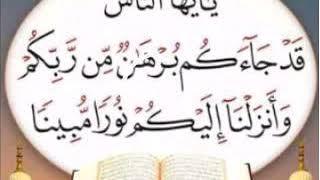 يَٰٓأَيُّهَا ٱلنَّاسُ
قَدْ جَآءَكُم بُرْهَٰنٌ مِّن رَّبِّكُمْ
وَأَنزَلْنَآ إِلَيْكُمْ نُورًا مُّبِينًا